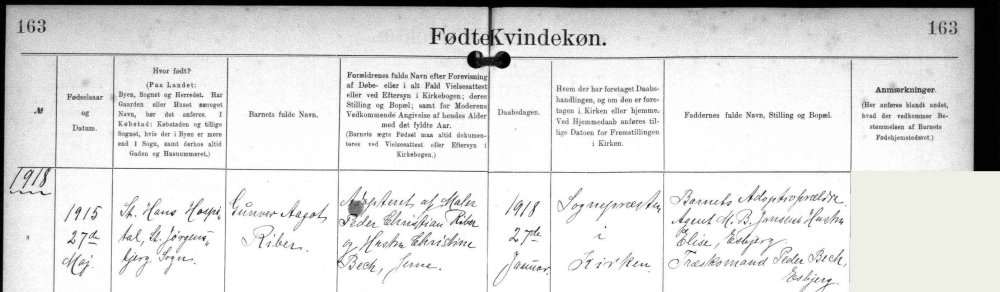 163
Fødte Kvindekøn.
163
№
Fødselsaar
og
Datum.
Hvor født?
(Paa Landet:
Byen, Sognet og Herredet. Har
Gaarden eller Huset særeget
Navn, bør det anføres. I
Købstad: Købstaden og tillige
Sognet, hvis der i Byen er mere
end 1 Sogn, samt derhos altid
Gaden og Husnummeret.)
Barnets fulde Navn.
Forældrenes fulde Navn efter Forevisning
af Døbe- eller i alt Fald Vielsesattest
eller ved Eftersyn i Kirkebogen; deres
Stilling og Bopæl; samt for Moderens
Vedkommende Angivelse af hendes Alder
med det fyldte Aar.
(Barnets ægte Fødsel maa altid dokumen-
teres ved Vielsesattest eller Eftersyn i
Kirkebogen.)
Daabsdagen.
Hvem der har foretaget Daabs-
handlingen, og om den er fore-
tagen i Kirken eller hjemme.
Ved Hjemmedaab anføres til-
lige Datoen for Fremstillingen
i Kirken.
Faddernes fulde Navn, Stilling og Bopæl.
Anmærkninger.
(Her anføres blandt andet,
hvad der vedkommer Be-
stemmelsen af Barnets
Fødehjemstedsret.)
1918
1915
27de
Maj.
St. Hans Hospi-
tal, St. Jørgens-
bjerg Sogn.
Gunver Aagot
Riber.
Adopteret af Maler
Peder Christian Riber
og Hustru Christine
Bech, Jerne.
1918
27de
Januar.
Sognepræsten
i
Kirken.
Barnets Adoptivforældre
Agent M. B. Jansens Hustru
Elise, Esbjerg
Træskomand Peder Bech,
Esbjerg.